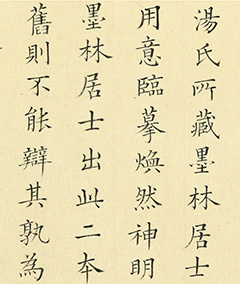 湯氏所藏墨林居士
用意臨摹煥然神明
墨林居士出此二本
舊則不能辯其孰為